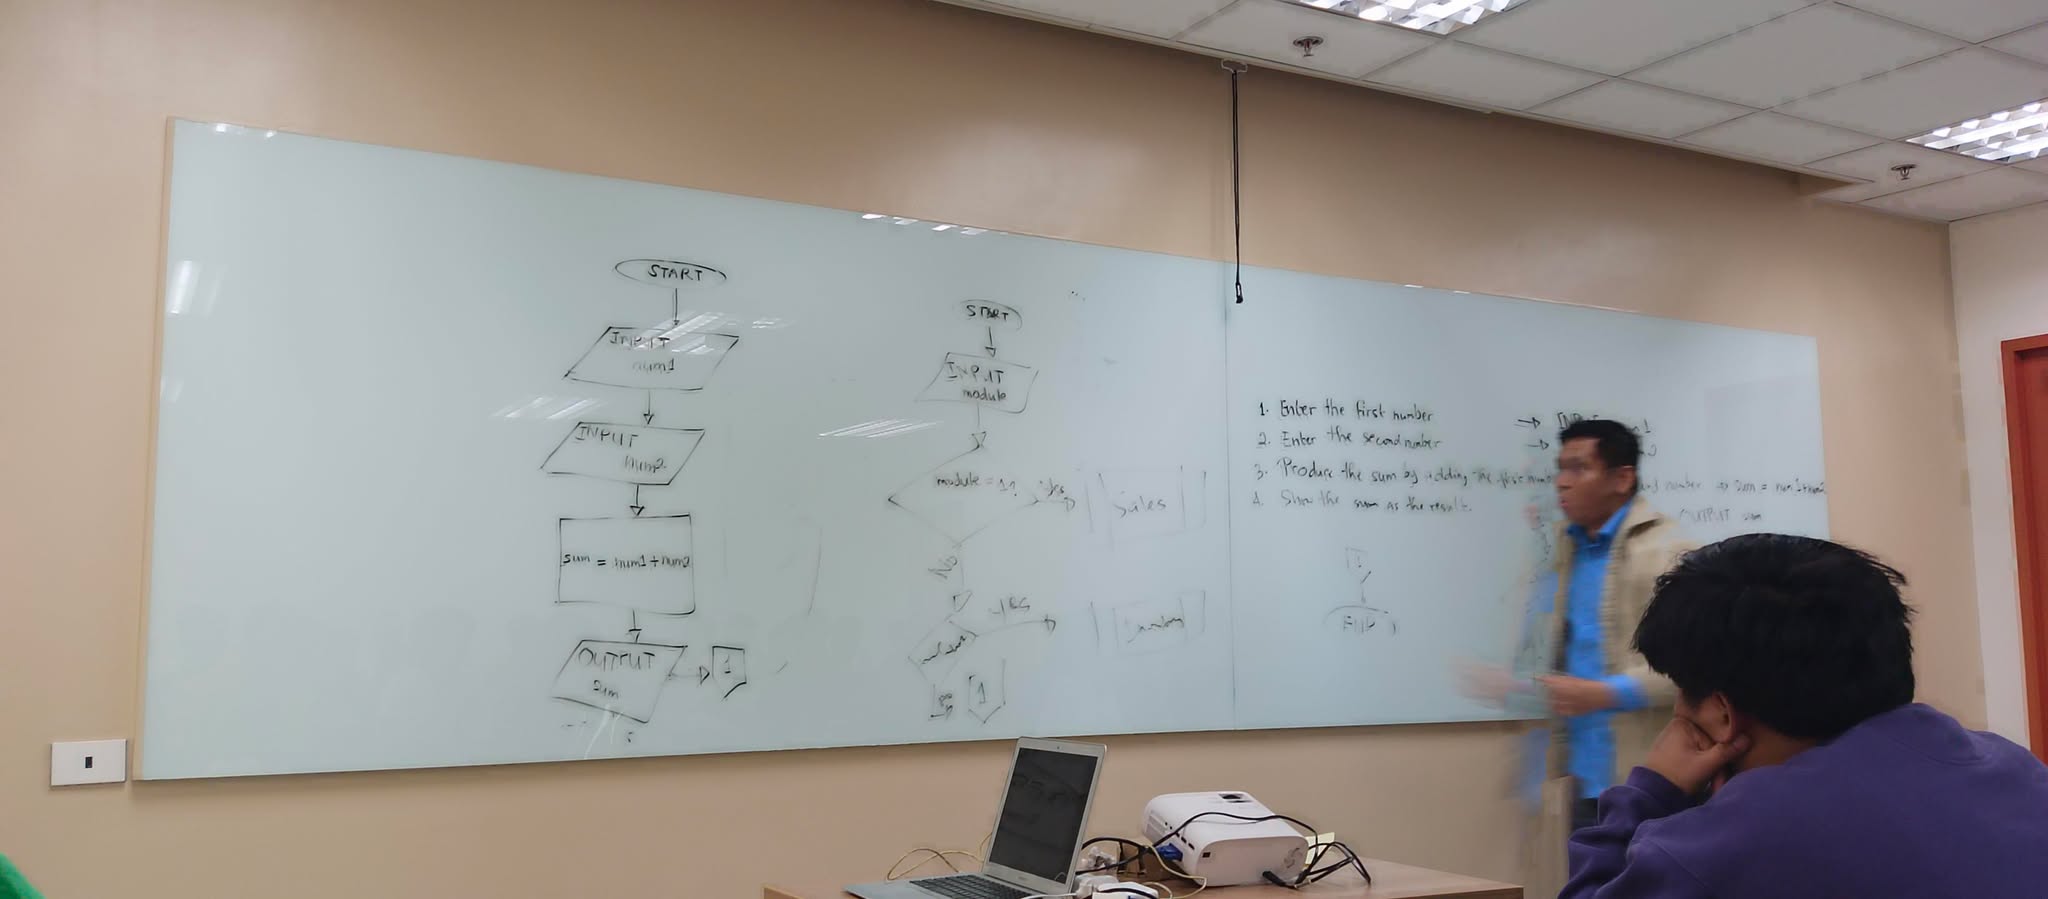 START
INPUT
num1
INPUT
num2
sum = num1 + num2
OUTPUT
sum
1
START
INPUT
module
module = 1?
Yes
Sales
No
Yes
1
1. Enter the first number
2. Enter the second number
3. Produce the sum by adding the first number → sum = num1+num2
4. Show the sum as the result.
OUTPUT sum
END